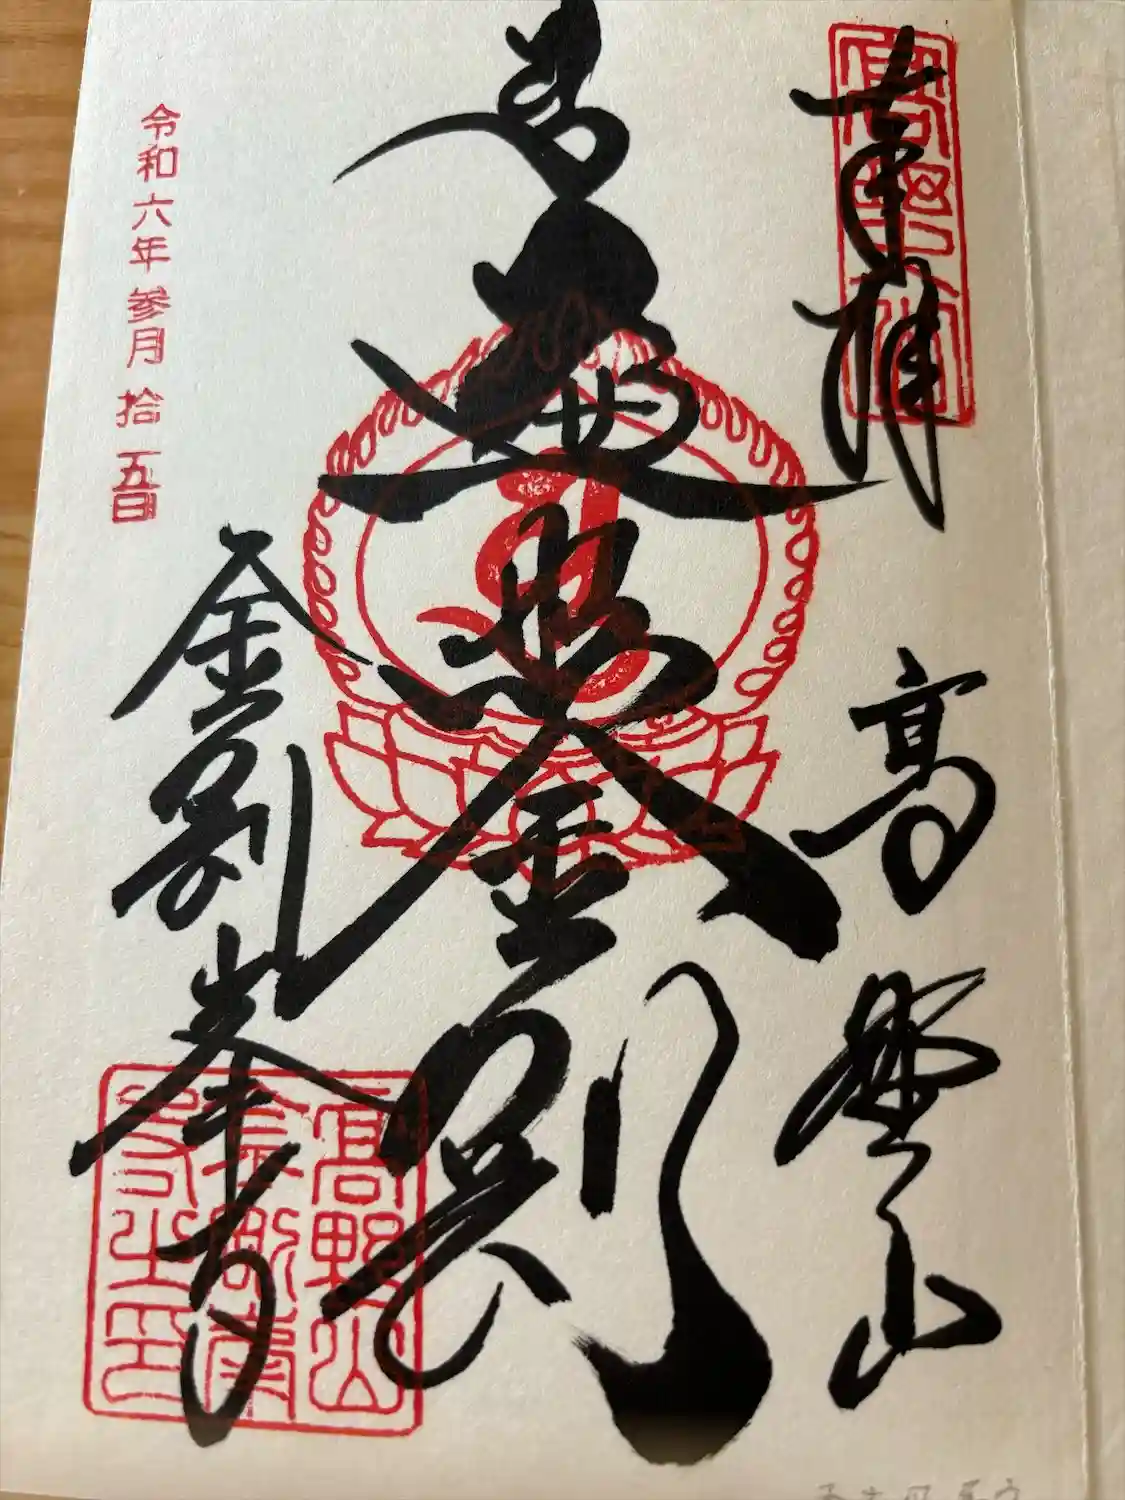 奉拝
高野山
遍照金剛
令和六年参月拾五日
金剛峯寺
高野山
金剛峯
寺之印